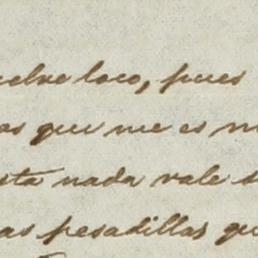 uelve loco, pues
os que me es m
sta nada vale s
as pesadillas qu